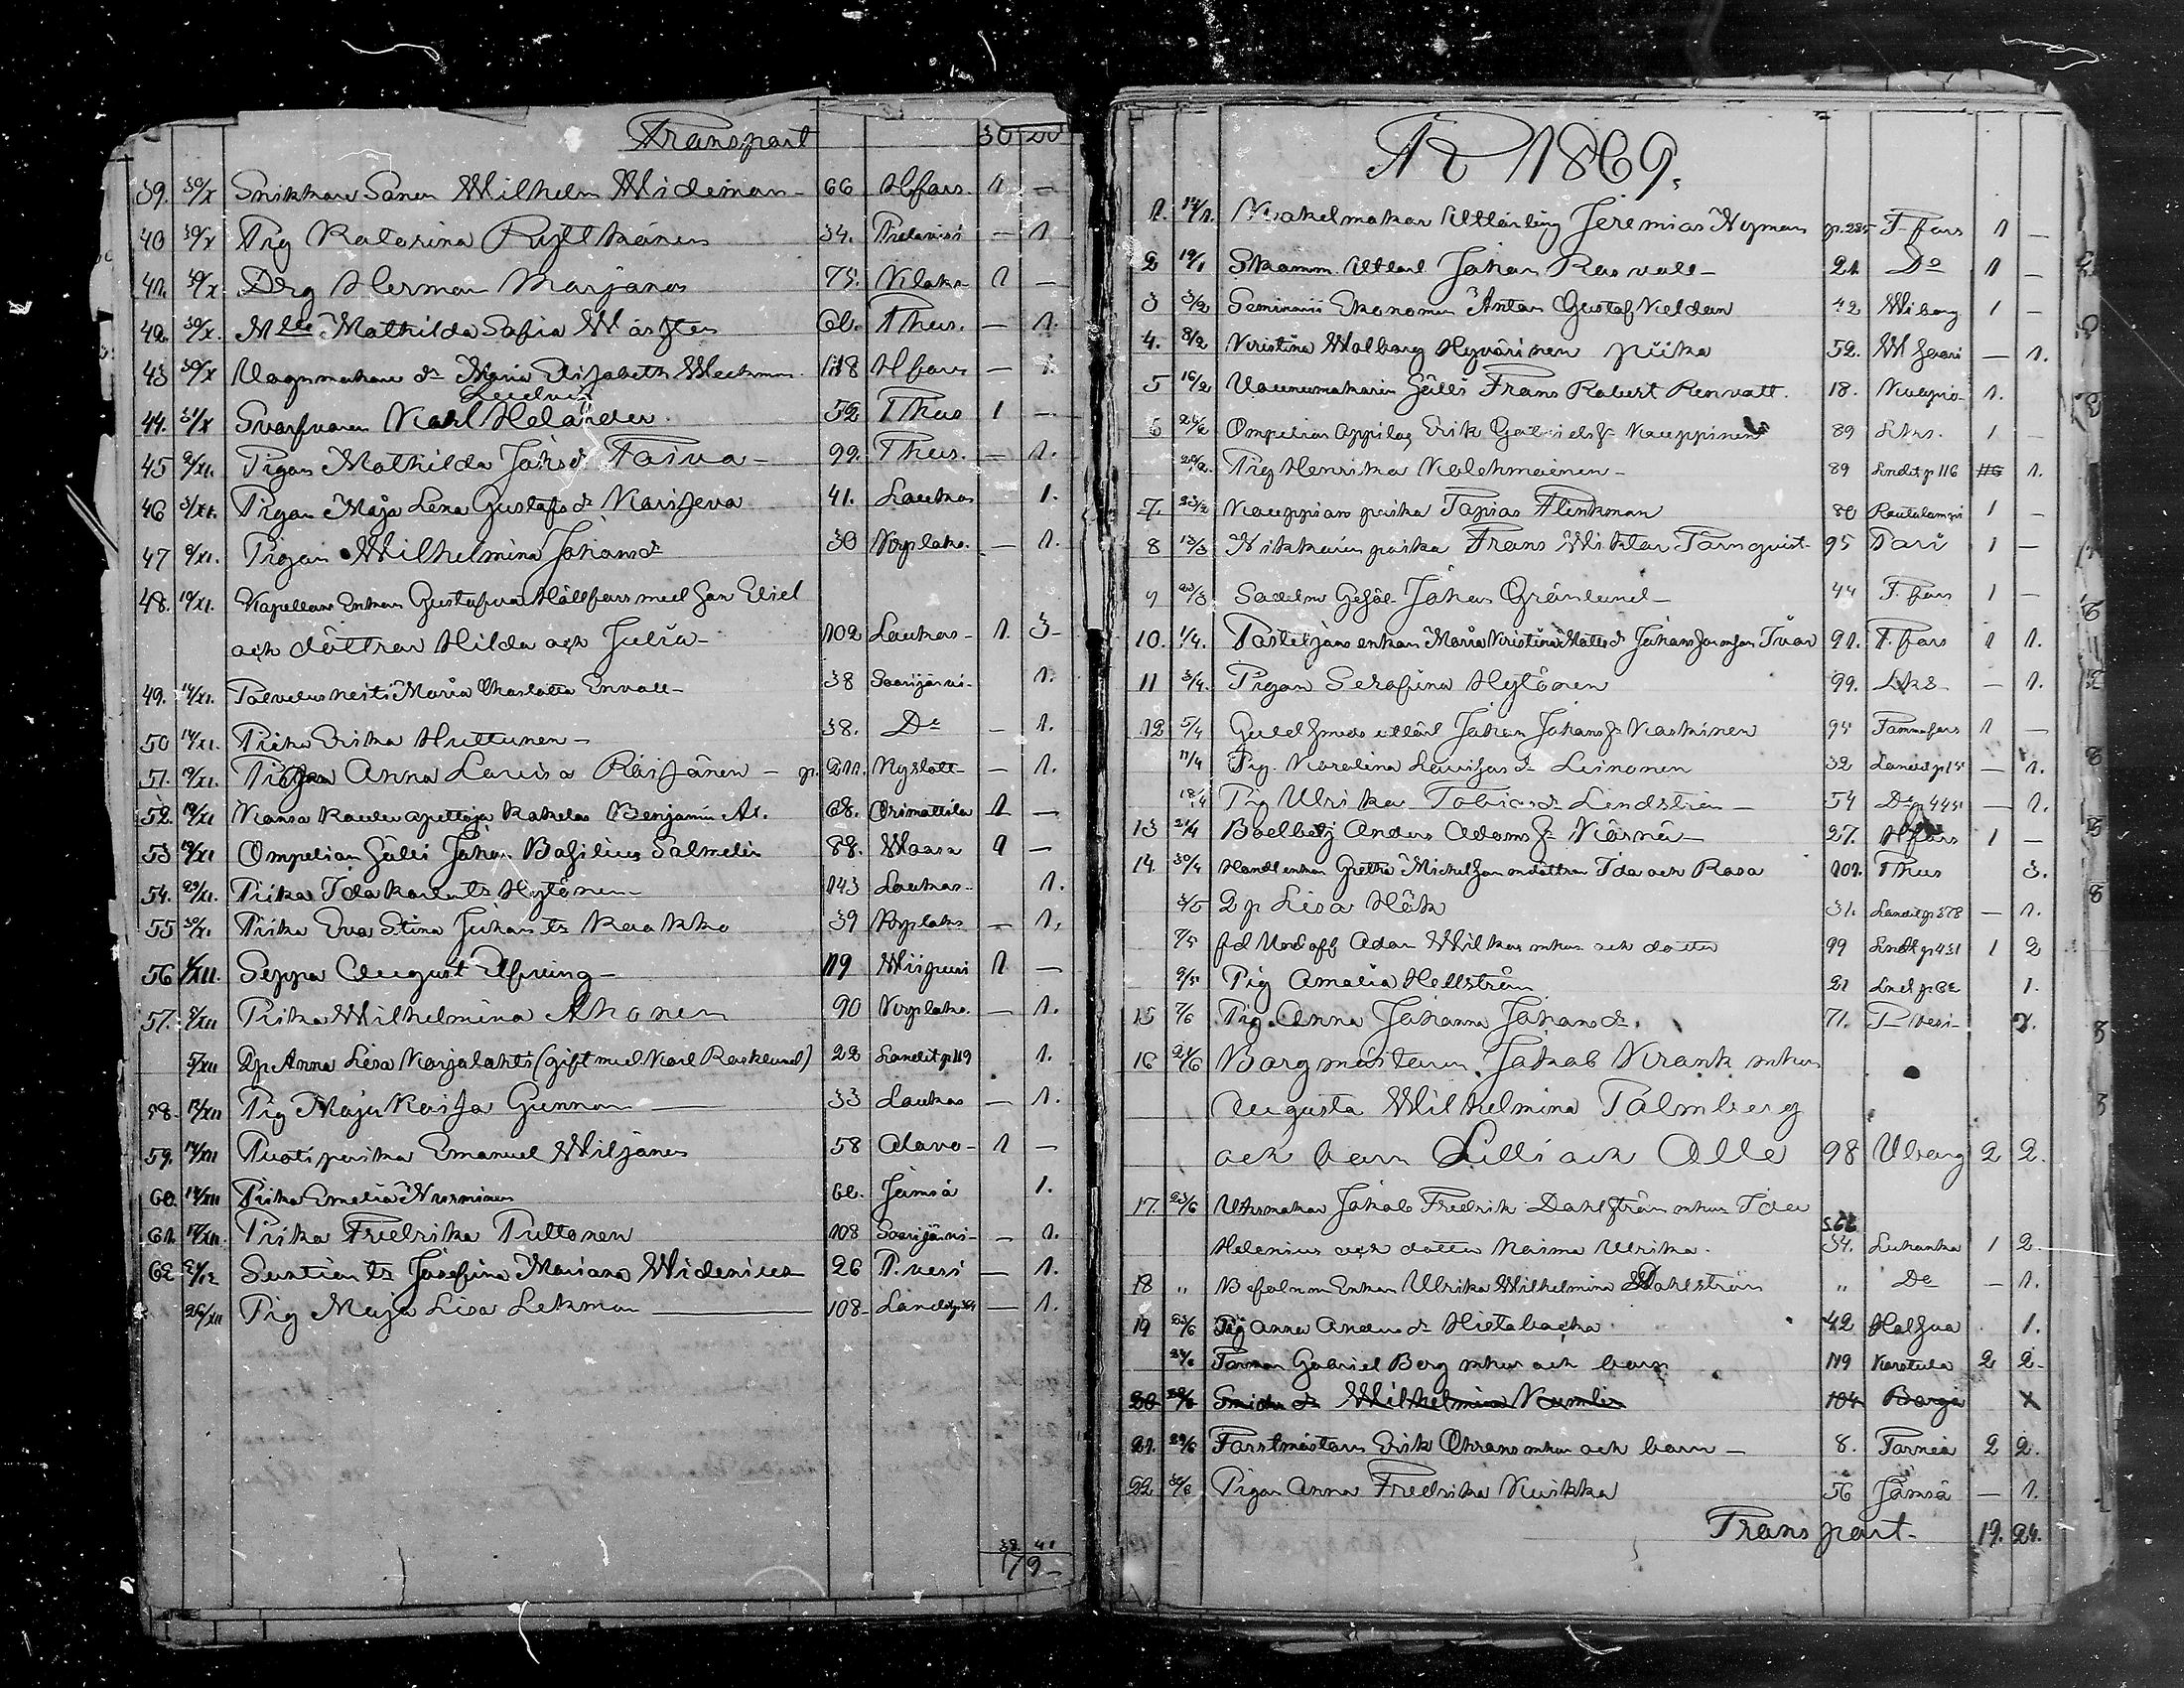 Transport 30 20
39. 30/X Snikkare Sånen Wilhelm Wideman - 66 Hfors. 1 —
40 30/X Pig Katarina Ryllkänen 34. Pielavesi — 1
41. 30/X Drg Herman Marjanen 75. Nlaks 1 —
42. 30/X. Mlle Mathilda Sofia Wåsten 66. Thus. — 1.
43 30/X Vagnmakare dr Maria Elisabeth Weckman 118 Hfors — 1
Ludvig
44. 31/X Svarfvaren Karl Helander. 52 Thus 1 —
45 2/XI. Pigan Mathilda Johsdr Taiva - 99. Thus. — 1.
46 3/XI. Pigan Maja Lena Gustafsdr Karijeva 41. Laukas 1.
47 9/XI. Pigan Wilhelmina Johansdr 30 Krplaks. — 1.
48. 10/XI. Kapellans Enkan Gustafva Hållfors med son Eliel
och döttrar Hilda och Julia - 102 Laukas - 1. 3-
49. 14/XI. Palvelus neiti Maria Charlotta Envall - 38 Saarijärvi - 1.
50 14/XI. Piika Erika Huttunen - 38. Do — 1.
51. 19/XI. Pigan Anna Lovisa Räisänen - p. 211. Nyslott - — 1.
52. 19/XI Kansa koulu opettaja kokelas Benjamin A. 68. Orimattila 1 —
53 19/XI Ompelian Sälli Johan Basilius Salmelin 88. Waasa 1 —
54. 23/XI. Piika Ida Karlents Hytönen - 143 Laukas - 1.
55 30/XI. Piika Eva Stina Juhants Kaakko 39 Krplaks — 1.
56 1/XII. Seppa August Elfving - 119 Wiipuri 1 —
57. 2/XII Piika Wilhelmina Ahonen 90 Krplaks. — 1.
5/XII Qp Anna Lisa Karjalahti (gift med Karl Rasklund) 22 Landit p 119 1.
58. 12/XII Pig Maja Kaisa Gunnar — 33 Laukas — 1.
59. 14/XII Puoti poika Emanuel Wiljanen 58 Alavo - 1 —
60. 14/XII Piika Emelia Nurminen 66. Jämsä 1.
61. 17/XII. Piika Fredrika Puttonen 108 Saarijärvi - — 1.
62 21/12 Suntion ts Josefina Mariana Widenius 26 P. vesi — 1.
26/XII Pig Maja Lisa Lekman — 108 - Landit p 364 — 1.
38. 41
79 -
År 1869.
1. 14/1. Kakelmakar Uttärling Jeremias Nyman p. 285 T-fors 1 —
2 19/1 Skomm. Uttärl Johan Rosvall - 21. Do 1 —
3 3/2 Seminarii Ekonomen Anton Gustaf Keldan 42 Wiborg 1 —
4. 8/2 Kristina Walborg Hyvärinen piika 52. W Saari — 1.
5 16/2 Vaunumakarin Sälli Frans Robert Renvall. 18. Kuopio - 1.
6 24/2 Ompelian oppilas Erik Gabrielss Kauppinen 89 Lkrs. 1 —
26/2. Pig Henrika Kolehmainen - 89 Landit p 116 1.
7. 23/2 Kauppias poika Topias Flinkman 80 Rautalampi 1 —
8 13/3 Nikkarin poika Frans Wiktor Törnqvist. 95 Pori 1 —
9 23/3 Sadelm Gesäl. Johan Grönlund - 44 T. fors 1 —
10. 1/4. Postiljons enkan Maria Kristina Mattsdr Johansson son Ivar 91. T. fors 1 1.
11 3/4. Pigan Serafina Hytönen 99. Lks - — 1.
12 5/4 Guldsmeds uttärl Johan Johanss Kaskinen 95 Tammerfors 1 —
11/4 Pig. Karolina Lovisasdr Leinonen 32 Landit p 15 — 1.
18/4 Pig Ulrika Tobiasdr Lindström - 54 Do p 445 — 1.
13 21/4 Boelbetj Anders Adams s Kärnä - 27. Hfors 1 —
14. 30/4 Handl enkan Gretha Mickelsson o döttrar Ida och Rosa 101. Thus 3.
3/5 Qp Lisa Hök 31. Landit p 378 — 1.
7/5 fd Und off Adam Wilkas m hu och dotter 99 Landt p 431 1 2
9/5 Pig Amalia Hellström 21 Lndt p 62 1.
15 7/6 Pig. Anna Johanna Johansdr. 71. P-vesi - 1.
16 21/6 Borgmästaren Jakob Krank m hu
Augusta Wilhelmina Palmberg
och barn Lilli och Olle 98 Uborg 2 2.
17. 23/6 Uhrmakar Jakob Fredrik Dahlström m hu Ida
Helenius och dotter Naima Ulrika. 54. Luhanka 1 2.
18 " Befalnm Enkan Ulrika Wilhelmina Dahlström " Do — 1.
19 23/6 Pig Anna Andersdr Hietabacka 42 Halsua 1.
24/6 Torman Gabriel Berg m hu och barn 119 Karstula 2 2.
20 28/6 Smeds dr Wilhelmina Kumlin 104 Borgå X
21. 29/6 Forstmästaren Erik Ohrans m hu och barn - 8. Torneå 2 2.
22 30/6 Pigan Anna Fredrika Kuikka 56 Jämsä — 1.
Transport - 19. 24.